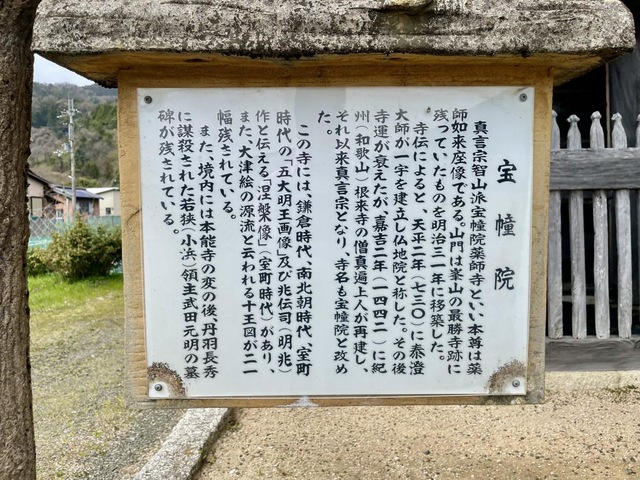 宝幢院
真言宗智山派宝幢院薬師寺といい本尊は薬
師如来座像である。山門は峯山の最勝寺跡に
残っていたものを明治三一年に移築した。
寺伝によると、天平二年（七三〇）に泰澄
大師が一宇を建立し仏地院と称した。その後
寺運が衰えたが、嘉吉二年（一四四二）に紀
州（和歌山）根来寺の僧真遍上人が再建し、
それ以来真言宗となり、寺名も宝幢院と改め
た。
この寺には、鎌倉時代、南北朝時代、室町
時代の「五大明王画像」及び兆伝司（明兆）
作と伝える「涅槃像」（室町時代）があり、
また、大津絵の源流と云われる十王図が二一
幅残されている。
また、境内には本能寺の変の後、丹羽長秀
に謀殺された若狭（小浜）領主武田元明の墓
碑が残されている。